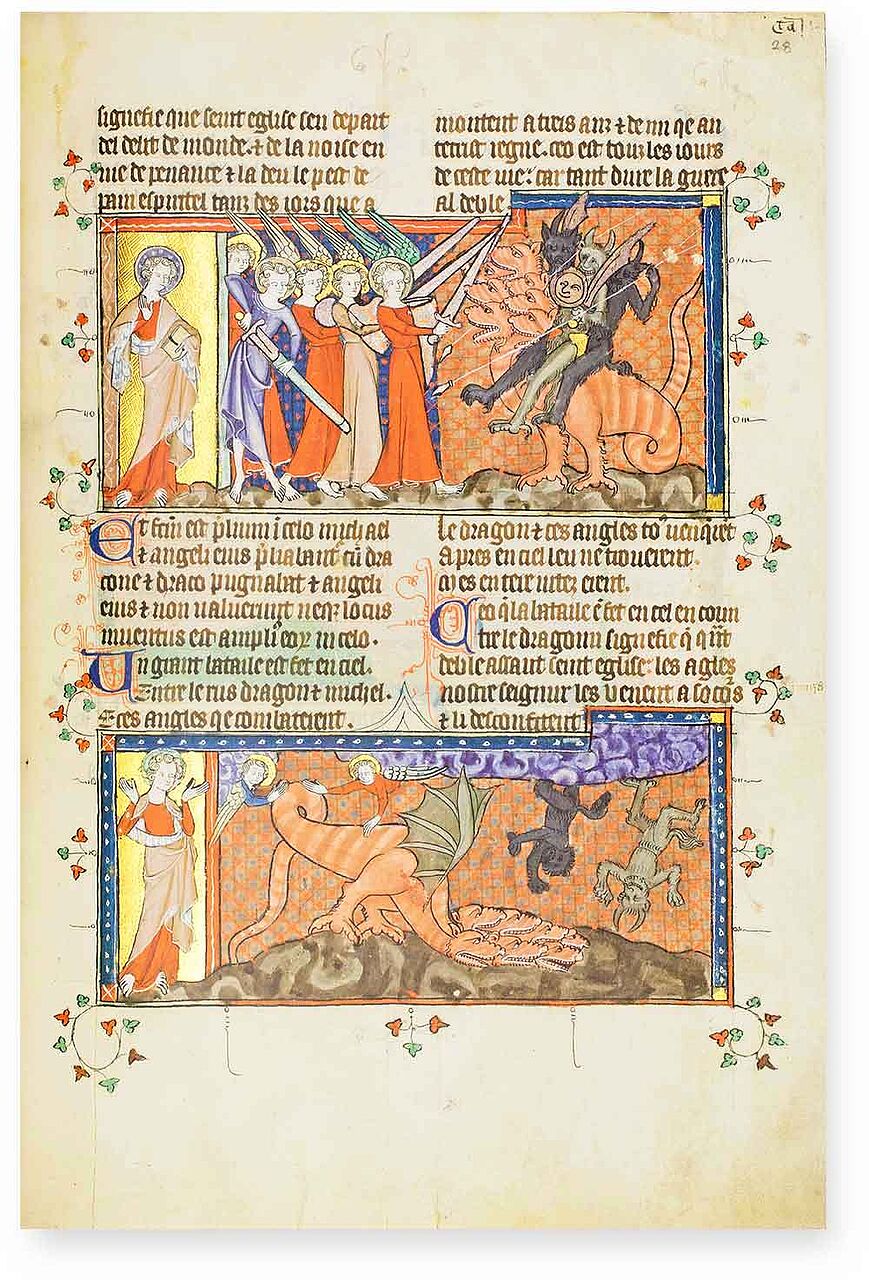 28
signefie que seint eglise sen depart
del delit de monde. ⁊ de la noise en
uie de penance ⁊ la deu le pest de
pain espiritel tanz des iors que a
montent a treis anz ⁊ demi qe an
tecrist regne. ceo est touz les iours
de ceste uie: car tant dure la guere
al deble
Et fcm̃ est p̃lium ĩ celo michael
⁊ angeli eius p̃liabant̃ cũ dra
cone ⁊ draco pugnabat ⁊ angeli
eius ⁊ non ualuerunt neqꝫ locus
inuentus est ampliꝰ eoꝝ in celo.
Un grant bataile est fet en ciel.
Entre le rus dragon ⁊ michel.
E ces angles qe combaterent.
le dragon ⁊ ces angles toꝰ uenquet
Apres en ciel leu ne trouerent.
en tere
Ceo q̃ la bataile ẽ fet en cel en coun
tre le dragoun signefie q̃ q̃nt
deble assaut seint eglise: les āgles
nostre seignur les uenent a socors
⁊ li desconfitent